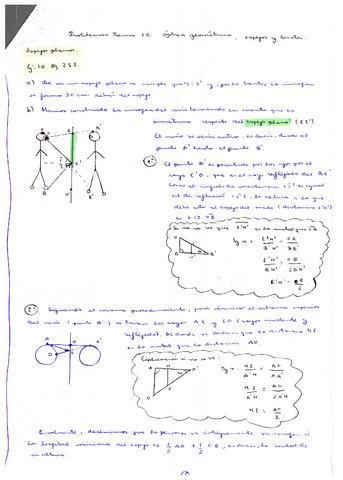 Problemas tema 10. óptica geométrica, espejos y lentes.
Espejos planos.
Ej. 10 pg 252.
a) De en un espejo plano se cumple que s = s' y, por lo tanto, la imagen
se forma 30 cm detrás del espejo
b) Hemos construido la imagen del niño teniendo en cuenta que es
simétrica respecto del espejo plano
El niño se verá entero, es decir, desde el
punto A' hasta el punto B'.
1º El punto B' es percibido por los ojos por el
rayo E'O, que es el rayo reflejado del BE'.
Como el ángulo de incidencia es igual
al de reflexión, la altura a la que
debe estar el espejo
es 1/2 OB
Si no se ve que E'H' es la mitad que OB
tg α = E'H' / B'H' = OB / BB'
E'H' / B'H' = OB / 2B'H'
E'H' = OB / 2
2º Siguiendo el mismo procedimiento, para observar el extremo superior
del niño (punto A') se trazan los rayos AE y EO (rayos incidente y
reflejado). De donde se deduce que la distancia HE
es la mitad que la distancia AO.
Explicación si no se ve:
tg α = HE / A'H = AO / AA'
HE / A'H = AO / 2A'H
HE = AO / 2
Finalmente, deducimos que la persona ve íntegramente su imagen si
la longitud mínima del espejo es 1/2 AO + 1/2 OB, es decir, la mitad de
su altura.